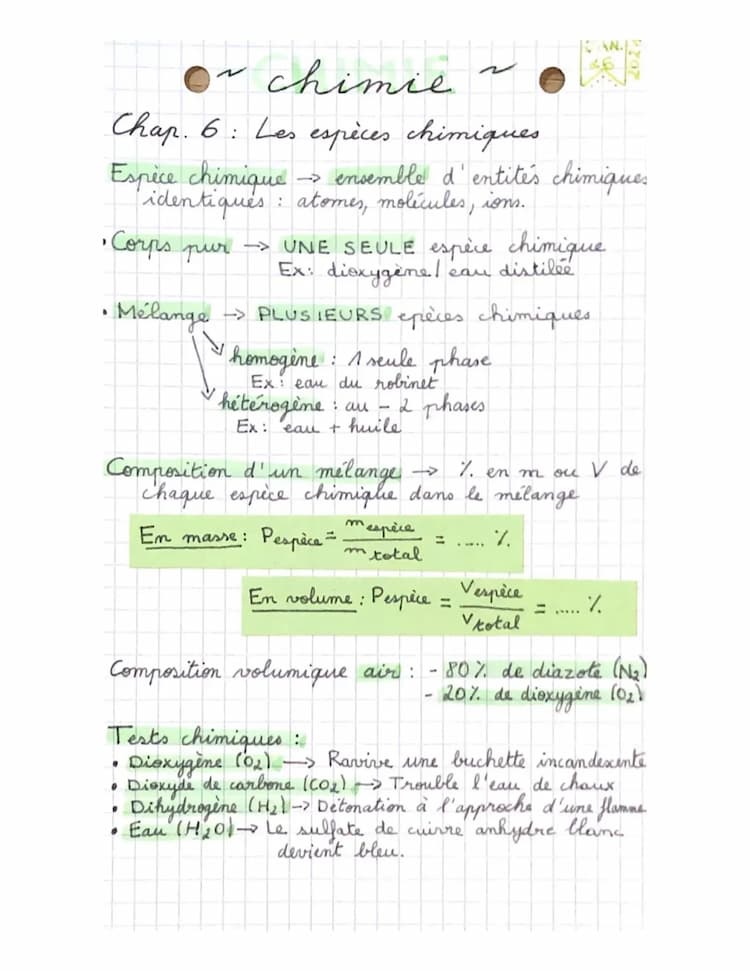 ~ chimie ~
Chap. 6 : Les espèces chimiques
Espèce chimique → ensemble d'entités chimiques
identiques : atomes, molécules, ions.
• Corps pur → UNE SEULE espèce chimique
Ex : dioxygène / eau distilée
• Mélange → PLUSIEURS epèces chimiques
homogène : 1 seule phase
Ex : eau du robinet
hétérogène : au - 2 phases
Ex : eau + huile
Composition d'un mélange → % en m ou V de
chaque espèce chimique dans le mélange
En masse : Pespèce = mespèce / mtotal = ..... %
En volume : Pespèce = Vespèce / Vtotal = ..... %
Composition volumique air : - 80% de diazote (N2)
- 20% de dioxygène (O2)
Tests chimiques :
• Dioxygène (O2) → Ravive une buchette incandexente
• Dioxyde de carbone (CO2) → Trouble l'eau de chaux
• Dihydrogène (H2) → Détonation à l'approche d'une flamme
• Eau (H2O) → Le sulfate de cuivre anhydre blanc
devient bleu.